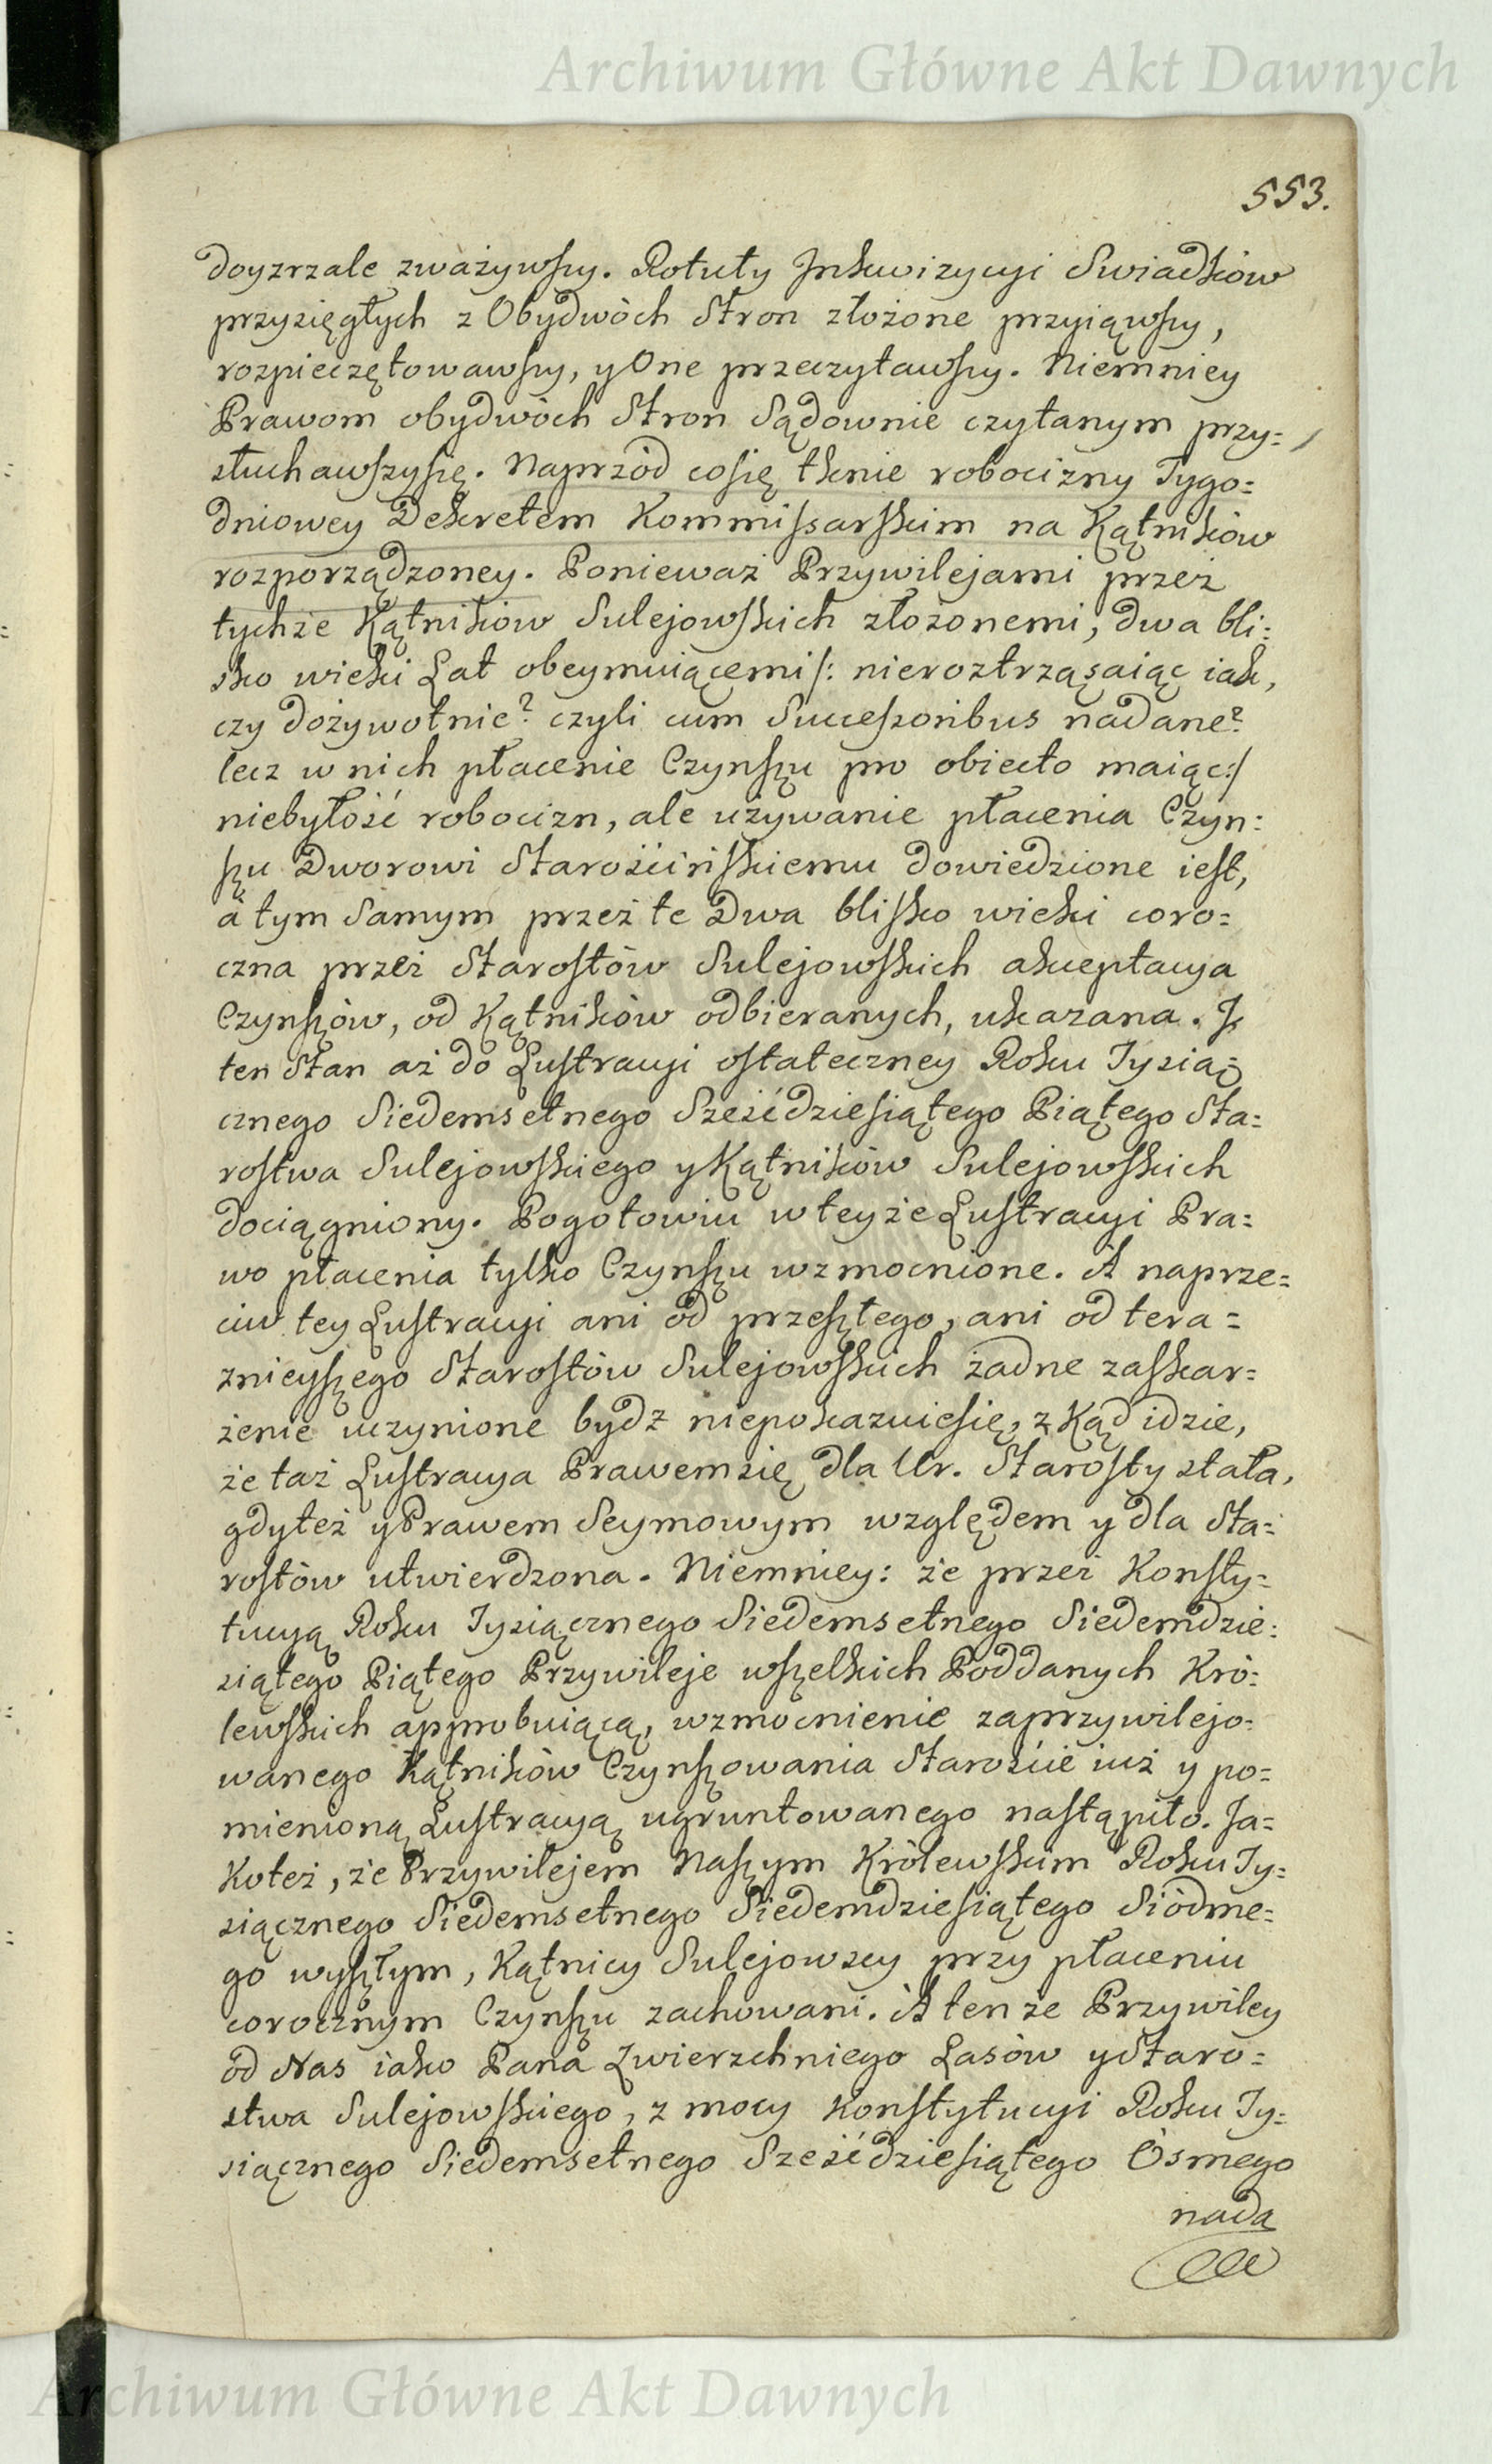 Archiwum Główne Akt Dawnych
553.
doyzrzale zważywszy. Rotuły Inkwizycyi Swiadków
przysięgłych z Obydwóch Stron złożone przyiąwszy,
rozpieczętowawszy, y One przeczytawszy. Niemniey
Prawom obydwóch Stron Sądownie czytanym przy=
słuchawszysię. Naprzód cosię tknie robocizny Tygo=
dniowey Dekretem Kommissarskim na Kątników
rozporządzoney. Ponieważ Przywilejami przez
tychże Kątników Sulejowskich złożonemi, dwa bli:
sko wieki Lat obeymuiącemi /: nieroztrząsaiąc iak,
czy dożywotnie? czyli cum Successoribus nadane?
lecz w nich płacenie Czynszu pro obiecto maiąc :/
niebyłość robocizn, ale używanie płacenia Czyn:
szu Dworowi Starościńskiemu dowiedzione iest,
à tym Samym przez te Dwa blisko wieki coro=
czna przez Starostów Sulejowskich akceptacya
Czynszów, od Kątników odbieranych, ukazana. I
ten Stan aż do Lustracyi ostateczney Roku Tysią=
cznego Siedemsetnego Sześćdziesiątego Piątego Sta=
rostwa Sulejowskiego y Kątników Sulejowskich
dociągniony. Pogotowiu w teyże Lustracyi Pra=
wo płacenia tylko Czynszu wzmocnione. A naprze=
ciw tey Lustracyi ani od przeszłego, ani od tera=
znieyszego Starostów Sulejowskich żadne zaskar=
żenie uczynione bydź niepokazuiesię, z Kąd idzie,
że taż Lustracya Prawem się dla Ur. Starosty stała,
gdyteż y Prawem Seymowym względem y dla Sta=
rostów utwierdzona. Niemniey: że przez Konsty=
tucyą Roku Tysiącznego Siedemsetnego Siedemdzie:
siątego Piątego Przywileje wszelkich Poddanych Kró=
lewskich approbuiącą, wzmocnienie zaprzywilejo=
wanego Kątników Czynszowania Staroście iuż y po=
mienioną Lustracyą ugruntowanego nastąpiło. Ja=
koteż, że Przywilejem Naszym Królewskim Roku Ty=
siącznego Siedemsetnego Siedemdziesiątego Siódme=
go wyszłym, Kątnicy Sulejowscy przy płaceniu
corocznym Czynszu zachowani. A tenże Przywiley
od Nas iako Pana Zwierzchniego Lasów y Staro=
stwa Sulejowskiego, z mocy Konstytucyi Roku Ty=
siącznego Siedemsetnego Sześćdziesiątego Ósmego
nada
Archiwum Główne Akt Dawnych